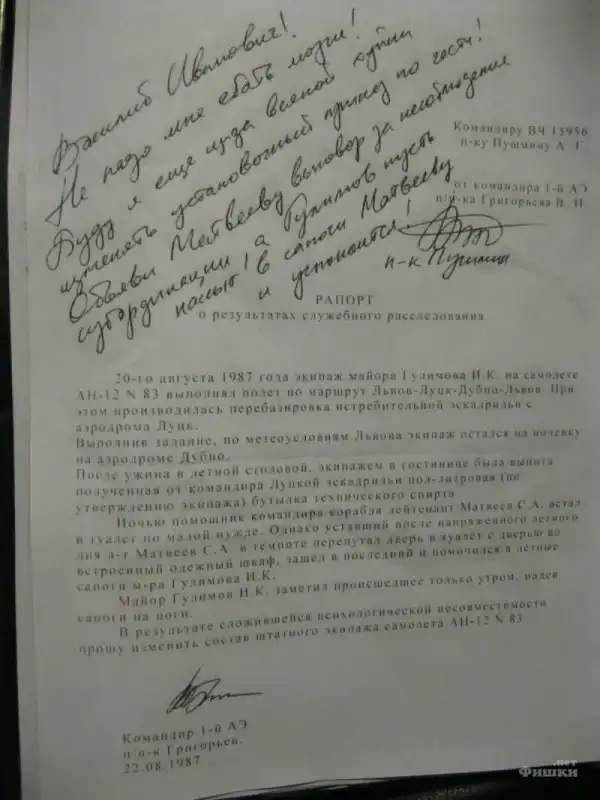 Василий Иванович!
Не надо мне ебать мозги!
Буду я еще из-за всякой хуйни
изменять установочный приказ по части!
Объяви Матвееву выговор за несоблюдение
субординации, а Гулимов пусть
нассыт в сапоги Матвееву
и успокоится!
п-к Пушмин
Командиру ВЧ 15956
п-ку Пушмину А. Г.
от командира 1-й АЭ
п/п-ка Григорьева В. И.
РАПОРТ
о результатах служебного расследования
20-го августа 1987 года экипаж майора Гулимова И.К. на самолете
АН-12 N 83 выполнял полет по маршрут Львов-Луцк-Дубно-Львов. При
этом производилась перебазировка истребительной эскадрильи с
аэродрома Луцк.
Выполнив задание, по метеоусловиям Львова экипаж остался на ночевку
на аэродроме Дубно.
После ужина в летной столовой, экипажем в гостинице была выпита
полученная от командира Луцкой эскадрильи пол-литровая (по
утверждению экипажа) бутылка технического спирта
Ночью помощник командира корабля лейтенант Матвеев С.А. встал
в туалет по малой нужде. Однако уставший после напряженного летного
дня л-т Матвеев С.А. в темноте перепутал дверь в туалет с дверью во
встроенный одежный шкаф, зашел в последний и помочился в летные
сапоги м-ра Гулимова И.К.
Майор Гулимов И.К. заметил происшедшее только утром, надев
сапоги на ноги.
В результате сложившейся психологической несовместимости
прошу изменить состав штатного экипажа самолета АН-12 N 83
Командир 1-й АЭ
п/п-к Григорьев.
22.08 1987
Фишки.нет